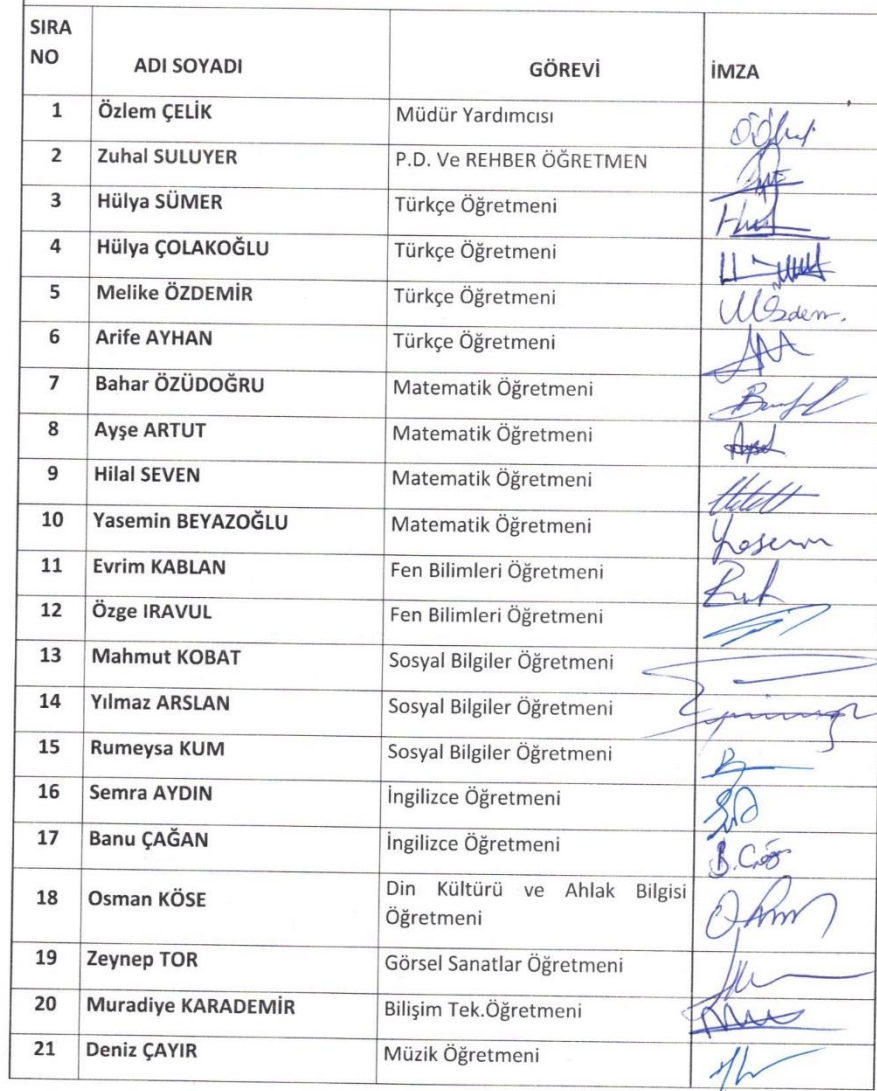 SIRA
NO ADI SOYADI GÖREVİ İMZA
1 Özlem ÇELİK Müdür Yardımcısı
2 Zuhal SULUYER P.D. Ve REHBER ÖĞRETMEN
3 Hülya SÜMER Türkçe Öğretmeni
4 Hülya ÇOLAKOĞLU Türkçe Öğretmeni
5 Melike ÖZDEMİR Türkçe Öğretmeni
6 Arife AYHAN Türkçe Öğretmeni
7 Bahar ÖZÜDOĞRU Matematik Öğretmeni
8 Ayşe ARTUT Matematik Öğretmeni
9 Hilal SEVEN Matematik Öğretmeni
10 Yasemin BEYAZOĞLU Matematik Öğretmeni
11 Evrim KABLAN Fen Bilimleri Öğretmeni
12 Özge IRAVUL Fen Bilimleri Öğretmeni
13 Mahmut KOBAT Sosyal Bilgiler Öğretmeni
14 Yılmaz ARSLAN Sosyal Bilgiler Öğretmeni
15 Rumeysa KUM Sosyal Bilgiler Öğretmeni
16 Semra AYDIN İngilizce Öğretmeni
17 Banu ÇAĞAN İngilizce Öğretmeni
18 Osman KÖSE Din Kültürü ve Ahlak Bilgisi
Öğretmeni
19 Zeynep TOR Görsel Sanatlar Öğretmeni
20 Muradiye KARADEMİR Bilişim Tek.Öğretmeni
21 Deniz ÇAYIR Müzik Öğretmeni